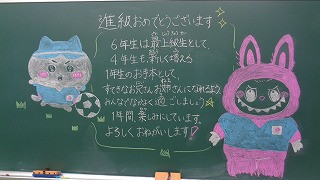 進級おめでとうございます
6年生は最上級生として、
4年生も新しく増える
1年生のお手本として
すてきなお兄さんお姉さんになれるよう、
みんなでなかよく過ごしましょう
1年間、楽しみにしています。
よろしくおねがいします!